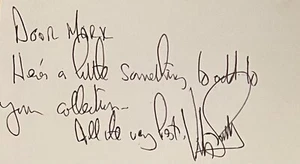 Dear Mark
Here's a little something to add to
your collection -
All the very best,